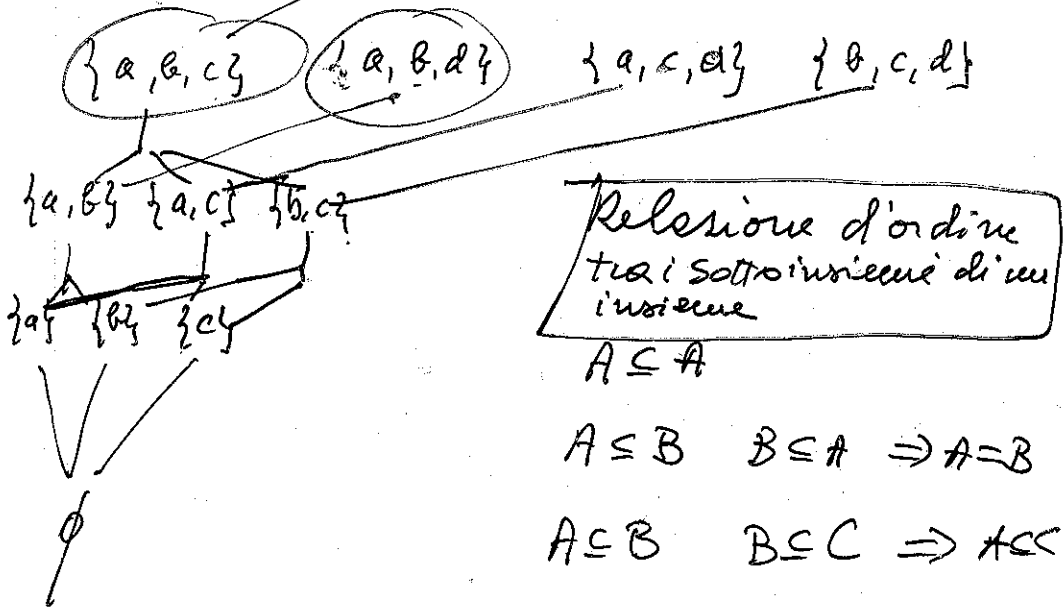 {a,b,c} {a,b,d} {a,c,d} {b,c,d}
{a,b} {a,c} {b,c}
{a} {b} {c}
∅
Relazione d'ordine
tra i sottoinsiemi di un
insieme
A ⊆ A
A ⊆ B B ⊆ A ⇒ A = B
A ⊆ B B ⊆ C ⇒ A ⊆ C